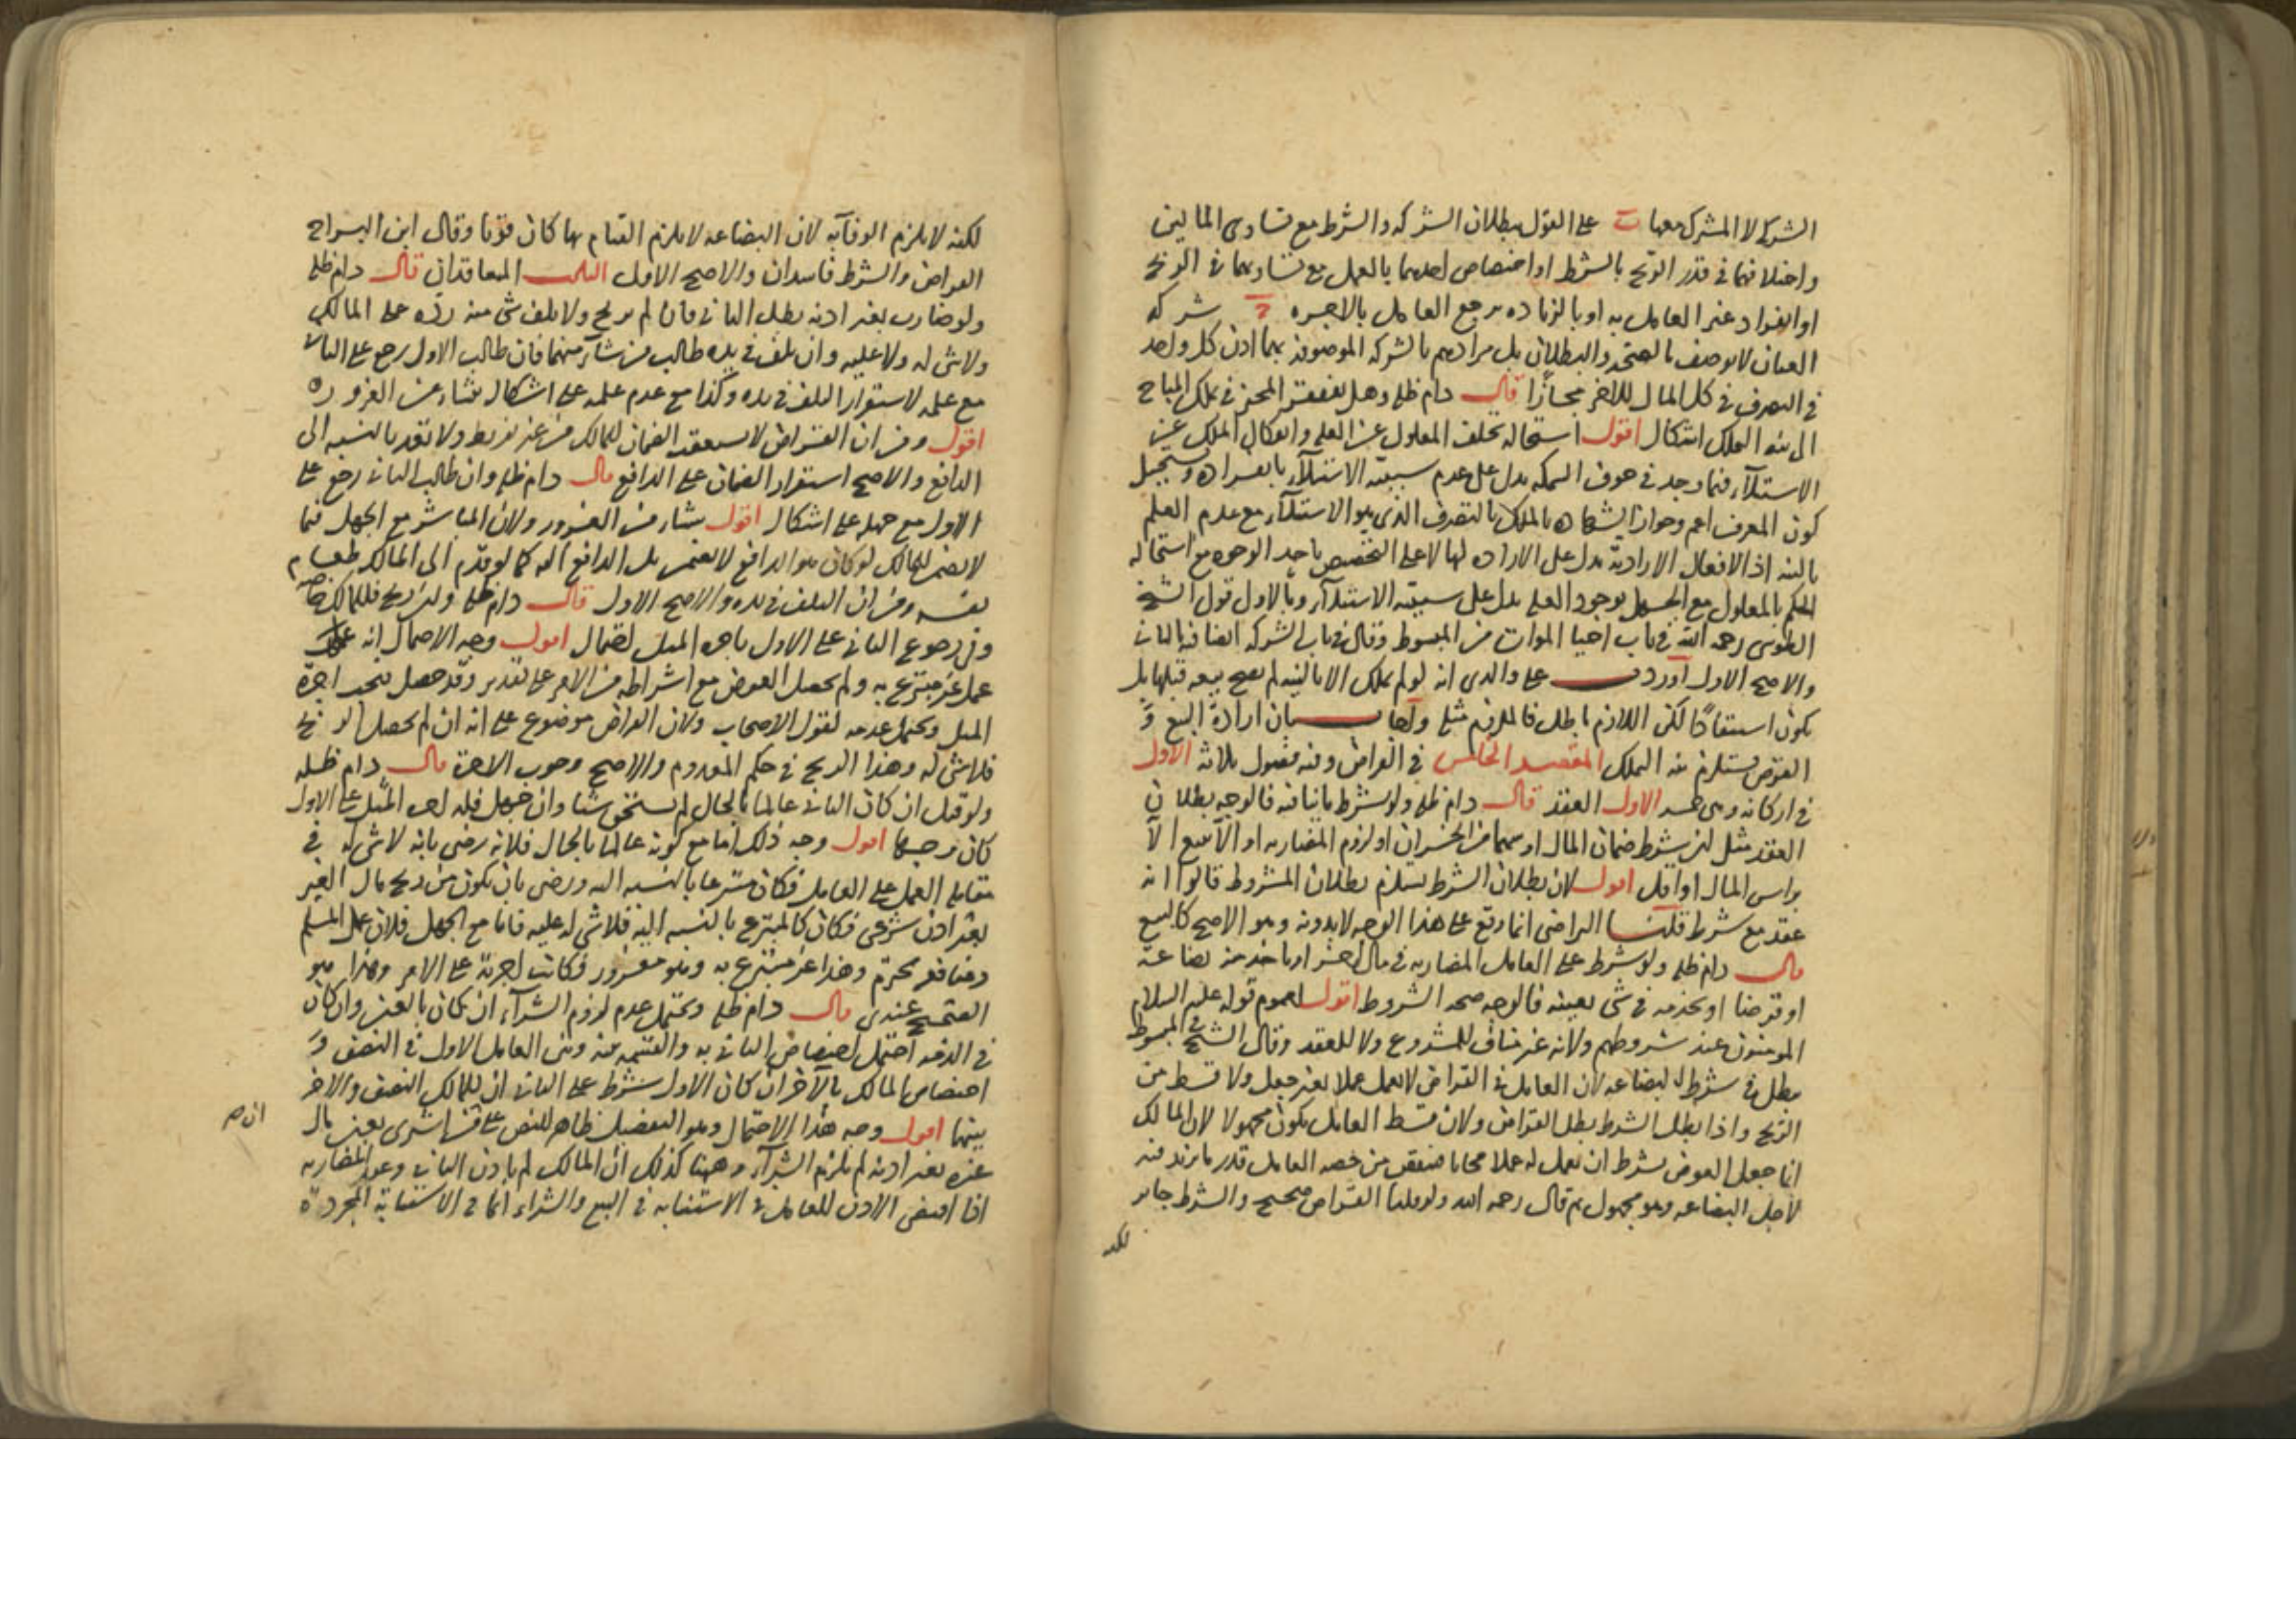 الشركة لا المشترك معها ب على القول ببطلان الشركه والشرط مع تساوى المالين
واختلافهما فى قدر الربح بالشرط او اختصاص احدهما بالعمل مع تساويهما فى الربح
او انفراد غير العامل به او بالزياده يرجع العامل بالاجره شركه
العنان لا يوصف بالصحة والبطلان بل مرادهم بالشركه الموصوفه بهما اذن كل واحد
فى التصرف فى كل المال للاخر مجازا قال دام ظله وهل يفتقر المحيز فى تملك المباح
الى نية التملك اشكال اقول استحاله تخلف المعلول عن العله وانفكاك الملك عن
الاستيلاء فيما وجد فى جوف السمكه يدل على عدم سببية الاستيلاء بانفراده ويستحيل
كون المعرف اعم وجواز الشهاده بالملك بالتصرف الذى هو الاستيلاء مع عدم العلم
بالنيه اذ الافعال الارادية تدل على الاراده لها لا على التخصيص باحد الوجوه مع استحاله
الحكم بالمعلول مع الجهل بوجود العله يدل على سببية الاستيلاء وبالاول قول الشيخ
الطوسى رحمه الله فى باب احيا الموات من المبسوط وقال فى باب الشركه ايضا فيه بالثانى
والاصح الاول اورد على والدى انه لو لم يملك الا بالنيه لم يصح بيعه قبلها بل
يكون استنقاذا لكن اللازم باطل فالملزوم مثله واجاب بان ارادة البيع و
العوض يستلزم نية التملك المقصد الخامس فى القراض وفيه فصول ثلاثة الاول
فى اركانه وهى خمسه الاول العقد قال دام ظله ولو شرط ما ينافيه فالوجه بطلان
العقد مثل ان يشرط ضمان المال او سهما من الخسران او لزوم المضاربه او الا يبيع الا
براس المال او اقل اقول لان بطلان الشرط يستلزم بطلان المشروط قالوا انه
عقد مع شرط قلنا التراضى انما وقع على هذا الوجه لا بدونه وهو الاصح كالبيع
قال دام ظله ولو شرط على العامل المضاربه فى مال اخر او ياخذ منه بضاعة
او قرضا او يخدمه فى شى بعينه فالوجه صحه الشروط اقول لعموم قوله عليه السلام
المومنون عند شروطهم ولانه غير مناف للمشروع ولا للعقد وقال الشيخ فى المبسوط
يبطل فى شرط البضاعه لان العامل فى القراض لا يعمل عملا بغير جعل ولا قسط من
الربح واذا بطل الشرط بطل القراض ولان قسط العامل يكون مجهولا لان المالك
انما جعل العوض بشرط ان يعمل له عملا مجانا فينقص من حصه العامل قدر ما يزيد فيه
لاجل البضاعه وهو مجهول ثم قال رحمه الله ولو قلنا القراض صحيح والشرط جايز
لكنه
لكنه لا يلزم الوفآ به لان البضاعه لا يلزم القيام بها كان قويا وقال ابن البراج
القراض والشرط فاسدان والاصح الاول الثانى المتعاقدان قال دام ظله
ولو ضارب بغير اذنه بطل الثانى فان لم يربح ولا تلف شى منه رده على المالك
ولا شى له ولا عليه وان تلف فى يده طالب من شآء منهما فان طالب الاول رجع على الثانى
مع علمه لاستقرار التلف فى يده وكذا مع عدم علمه على اشكال ينشاء من الغرور
اقول ومن ان القراض لا يستعقب الضمان للمالك من غير تفريط ولا تعد بالنسبه الى
الدافع والاصح استقرار الضمان على الدافع قال دام ظله وان طالب الثانى رجع على
الاول مع جهله على اشكال اقول ينشاء من الغرور ولان المباشر مع الجهل فيما
لا يضمن للمالك لو كان هو الدافع لا يضمن بل الدافع اليه كما لو قدم الى المالك طعام
نفسه ومن ان التلف فى يده والاصح الاول قال دام ظله وان ربح فللمالك خاصه
وفى رجوع الثانى على الاول باجره المثل احتمال اقول وجه الاحتمال انه عمل
عملا غير متبرع به ولم يحصل العوض مع اشتراطه من الامر على تقدير وقد حصل فتجب اجرة
المثل ويحتمل عدمه لقول الاصحاب ولان القراض موضوع على انه ان لم يحصل الربح
فلا شى له وهذا الربح فى حكم المعدوم والاصح وجوب الاجرة قال دام ظله
ولو قيل ان كان الثانى عالما بالحال لم يستحق شيئا وان جهل فله اجره المثل على الاول
كان وجها اقول وجه ذلك اما مع كونه عالما بالحال فلانه رضى بانه لا شى له فى
مقابله العمل على العامل فكان متبرعا بالنسبه اليه ورضى بان يكون من ربح مال الغير
بغير اذن شرعى فكان كالمتبرع بالنسبه اليه فلا شى له عليه فاما مع الجهل فلان عمل المسلم
ومنافعه محترم وهذا غير متبرع به وهو مغرور فكانت اجرته على الامر وهذا هو
الصحيح عندى قال دام ظله ويحتمل عدم لزوم الشرآء ان كان بالعين وان كان
فى الذمه احتمل اختصاص الثانى به والقسمه بينه وبين العامل الاول فى النصف و
اختصاص المالك بالآخر ان كان الاول شرط على الثانى ان للمالك النصف والاخر
بينهما اقول وجه هذا الاحتمال وهو التفصيل ظاهر للنص على من اشترى بعين مال
غيره بغير اذنه لم يلزم الشرآء وههنا كذلك ان المالك لم ياذن الثانى وعقد المضاربه
انما اقتضى الاذن للعامل فى الاستنابه فى البيع والشراء انما فى الاستنابة المجردة
ان صح